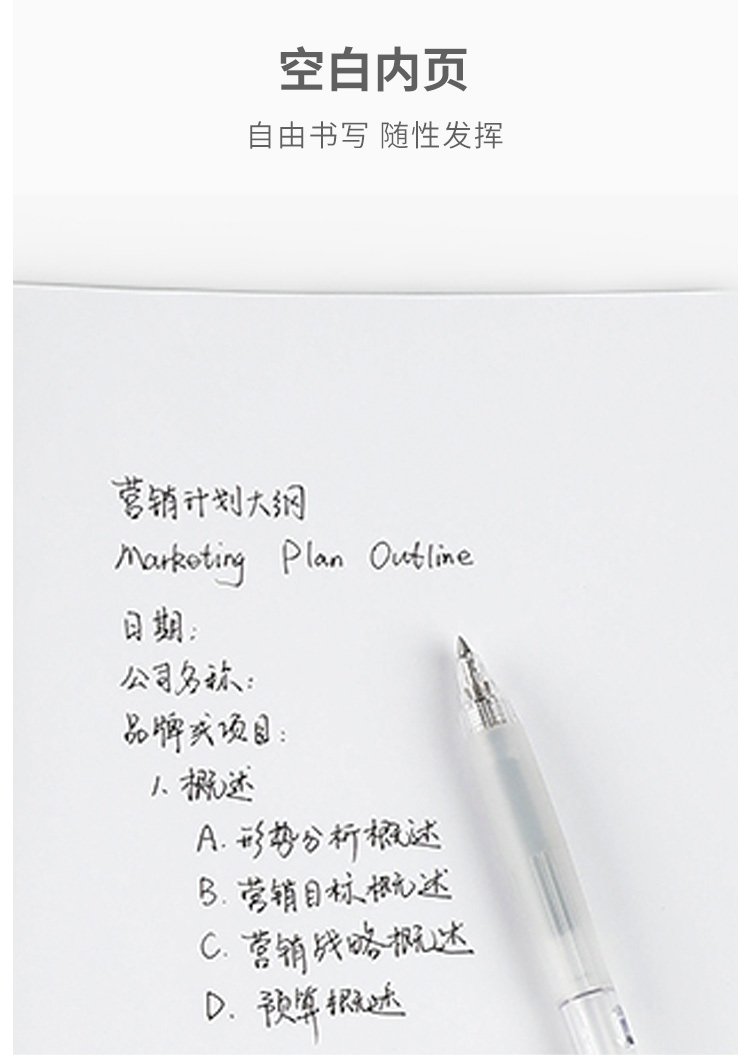 空白内页
自由书写 随性发挥
营销计划大纲
Marketing Plan Outline
日期:
公司名称:
品牌或项目:
1. 概述
A. 形势分析概述
B. 营销目标概述
C. 营销战略概述
D. 预算概述